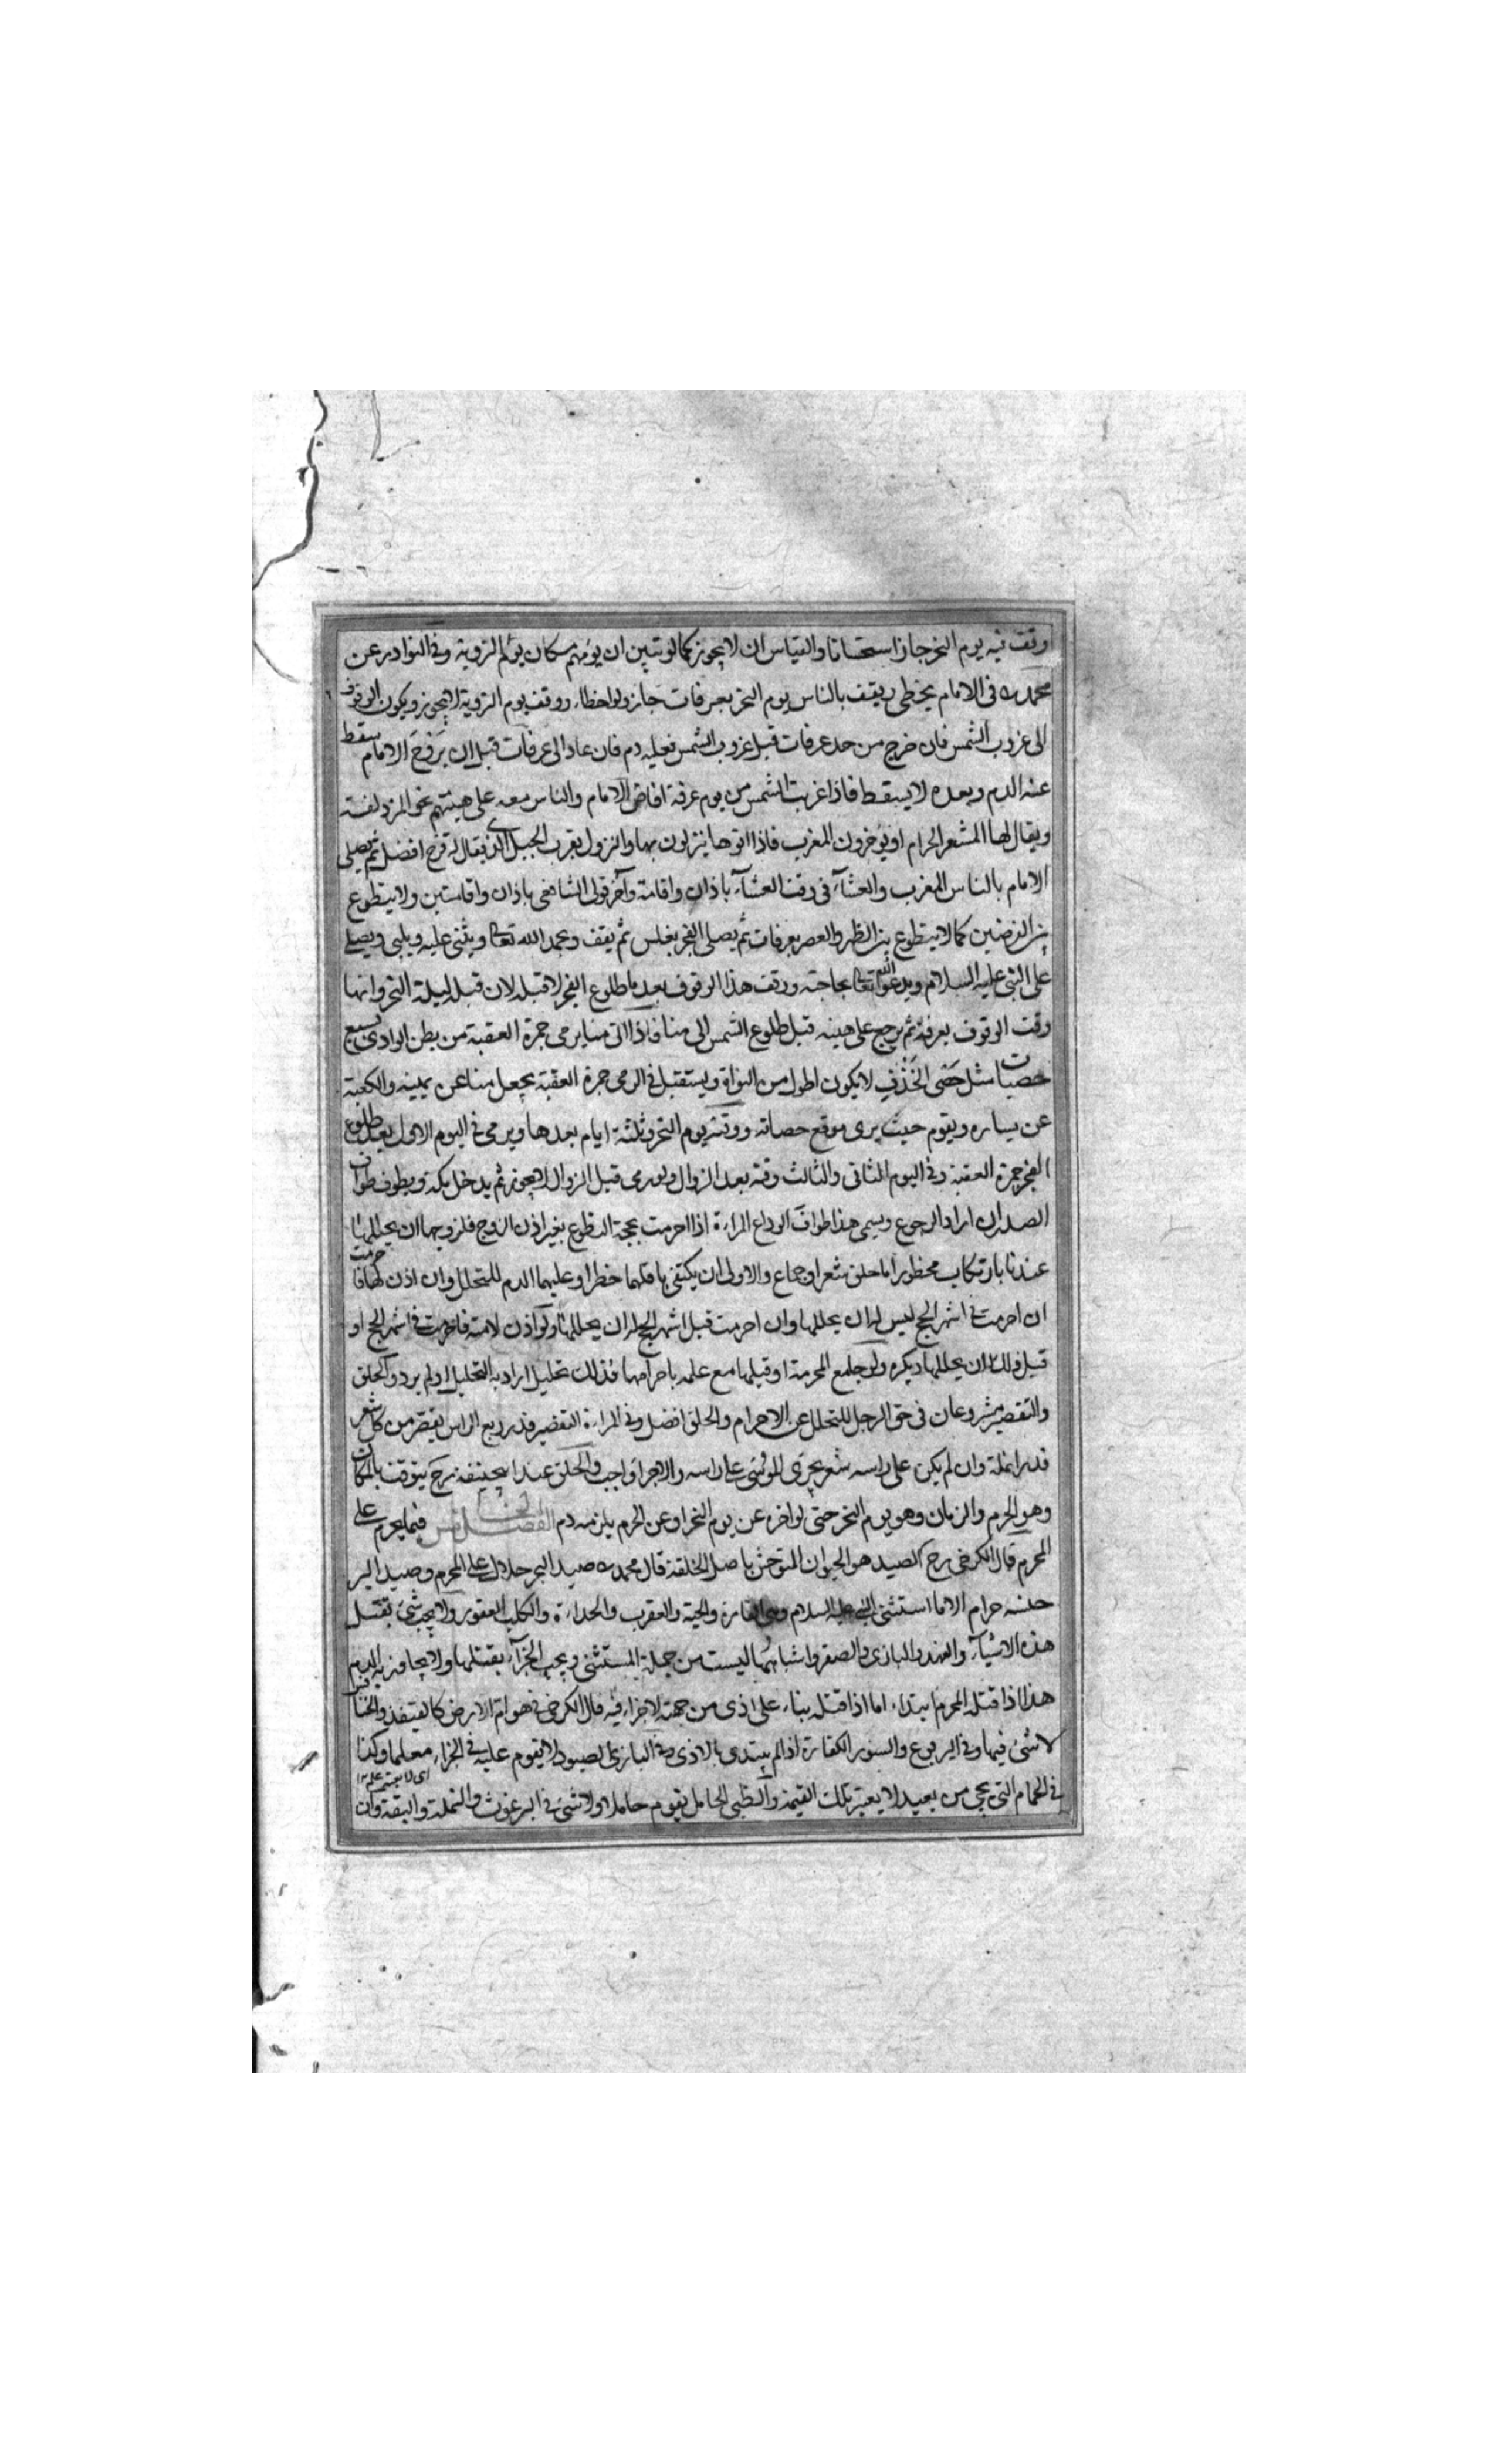 وقف فيه يوم النحر جاز استحسانا والقياس ان لا يجوز كما لو تبين ان يومهم كان يوم التروية وفى النوادر عن
محمد ره فى الامام يخطى ويقف بالناس يوم النحر بعرفات جاز ولو اخطاء ووقف يوم التروية لا يجوز ويكون الوقوف
الى غروب الشمس فان خرج من حد عرفات قبل غروب الشمس فعليه دم فان عاد الى عرفات قبل ان يروح الامام سقط
عنه الدم وبعده لا يسقط فاذا غربت الشمس من يوم عرفة افاض الامام والناس معه على هينتهم نحو المزدلفة
ويقال لها المشعر الحرام او يؤخرون المغرب فاذا اتوها ينزلون بها والنزول بقرب الجبل الذى يقال له قزح افضل ثم يصلى
الامام بالناس المغرب والعشآء فى وقت العشآء باذان واقامة وآخر قولى الشافعى باذان واقامتين ولا يتطوع
بين الفرضين كما لا يتطوع بين الظهر والعصر بعرفات ثم يصلى الفجر بغلس ثم يقف ويحمد الله تعالى ويثنى عليه ويلبى ويصلى
على النبى عليه السلام ويدعو الله تعالى بحاجته ووقت هذا الوقوف بعد ما طلوع الفجر لا قبله لان قبله ليلة النحر وانها
وقت الوقوف بعرفة ثم يرجع على هينه قبل طلوع الشمس الى منا فاذا اتى منا يرمى جمرة العقبة من بطن الوادى بسبع
حصيات مثل حَصَى الخَذْفِ لا يكون اطول من النواة ويستقبل فى الرمى جمرة العقبة يجعل منا عن يمينه والكعبة
عن يساره ويقوم حيث يرى موقع حصاته ووقته يوم النحر وثلثة ايام بعدها ويرمى فى اليوم الاول بعد طلوع
الفجر جمرة العقبة وفى اليوم الثانى والثالث وقته بعد الزوال ولو رمى قبل الزوال لا يجوز ثم يدخل بكة ويطوف طواف
الصدر ان اراد الرجوع ويسمى هذا طواف الوداع المراءة اذا احرمت بحجة التطوع بغير اذن الزوج فلزوجها ان يحللها
عندنا بارتكاب محظور اما حلق شعر او جماع والاولى ان يكتفى باقلهما حظرا وعليهما الدم للتحلل وان اذن لها فاحرمت
ان احرمت فى اشهر الحج ليس له ان يحللها وان احرمت قبل اشهر الحج له ان يحللها ولو اذن لامته فاحرمت فى اشهر الحج او
قبل فله ان يحللها ويكره ولو جامع المحرمة او قبلها مع علمه باحرامها فذلك تحليل اراد به التحليل او لم يرد والحلق
والتقصير مشروعان فى حق الرجل للتحلل عن الاحرام والحلق افضل وفى المراءة التقصير قدر ربع الراس يقصر من كل شعر
قدر انملة وان لم يكن على راسه شعر يجرى الموسى على راسه والاجراء واجب والحلق عند ابيحنيفة رح يتوقت بالمكان
وهو الحرم والزمان وهو يوم النحر حتى لو اخره عن يوم النحر او عن الحرم يلزمه دم الفصل الخامس فيما يحرم على
المحرم قال الكرخى رح الصيد هو الحيوان المتوحش باصل الخلقة قال محمد ره صيد البحر حلال على المحرم وصيد البر
حنسه حرام الا ما استثنى النبى عليه السلام وهى الفارة والحية والعقرب والحداءة والكلب العقور ولا يجب شئ بقتل
هذه الاشيآء والفهد والبازى والصقر واشباهها ليست من جملة المستثنى ويجب الجزآء بقتلها ولا يجاوز به الدم
هذا اذا قتله المحرم ابتداء اما اذا قتله بناء على اذى من جهته لا جزاء فيه قال الكرخى فى هوام الارض كالقنفذ والخنافس
لا شئ فيها وفى اليربوع والسنور الكفارة اذا لم يبتدى بالاذى وفى البازى الصيود لا يقوم عليه فى الجزاء معلما وكذا
فى الحمام التى يجى من بعيد لا يعتبر تلك القيمة والظبى الحامل يقوم حاملا ولا شئ فى البرغوث والنملة والبقة وان